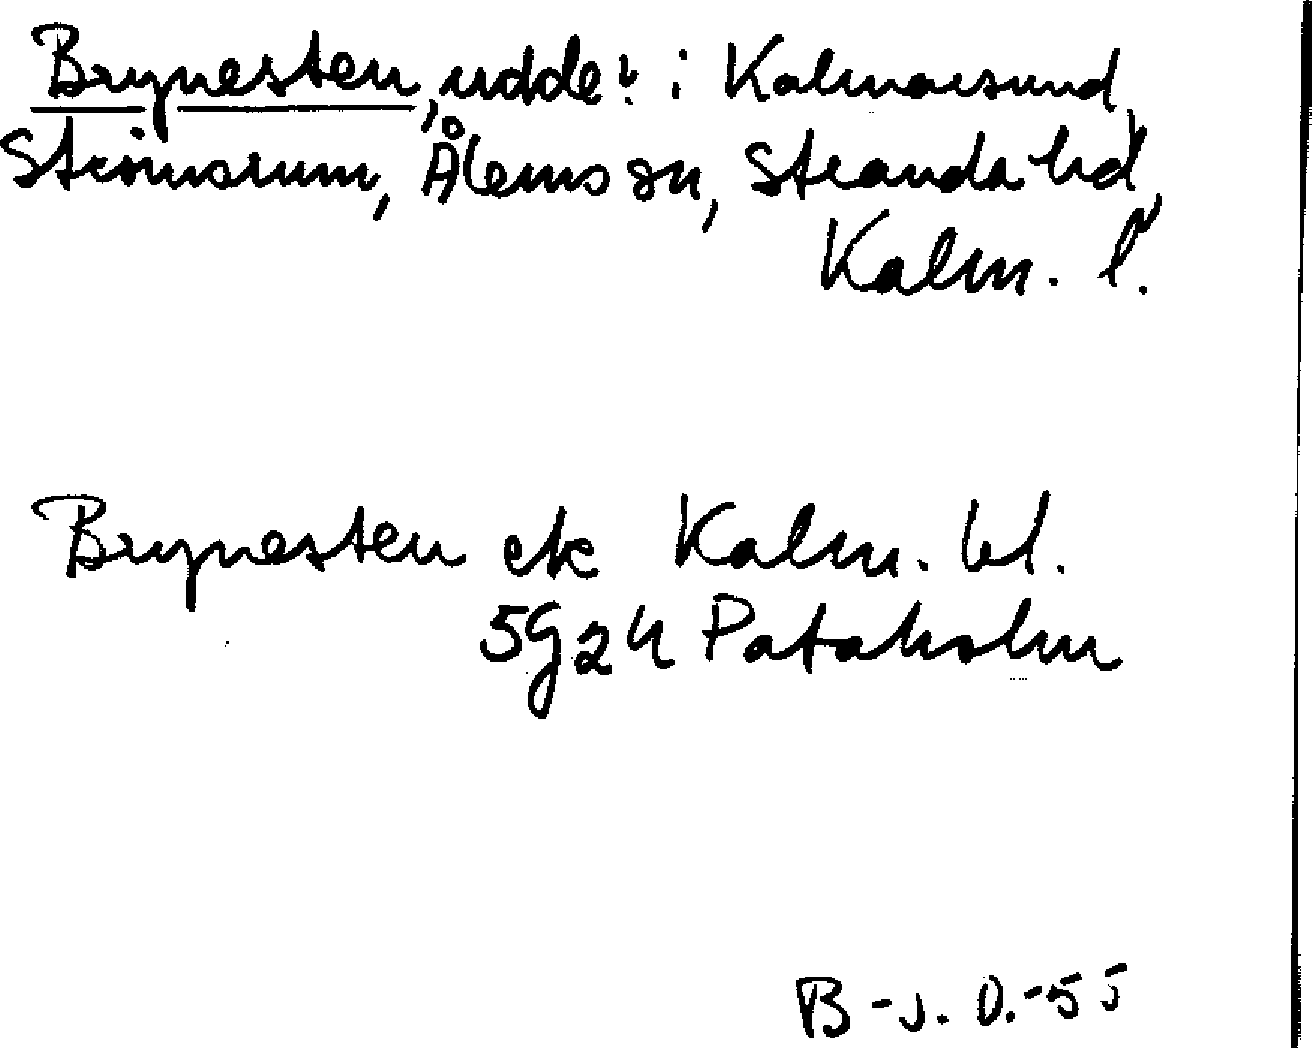 Brynesten, udde? i Kalmarsund,
Strömsrum, Ålems sn, Stranda hd,
Kalm. l.
Brynesten ek Kalm. bl.
5g24 Pataholm
B-J. O.-55